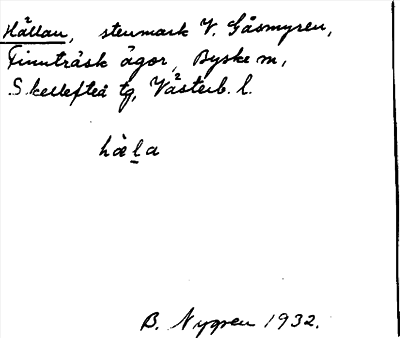 Hällan, stenmark V. Gåsmyren,
Finnträsk ägor, Byske m,
Skellefteå tg, Västerb. l.
häḻa
B. Nygren 1932.